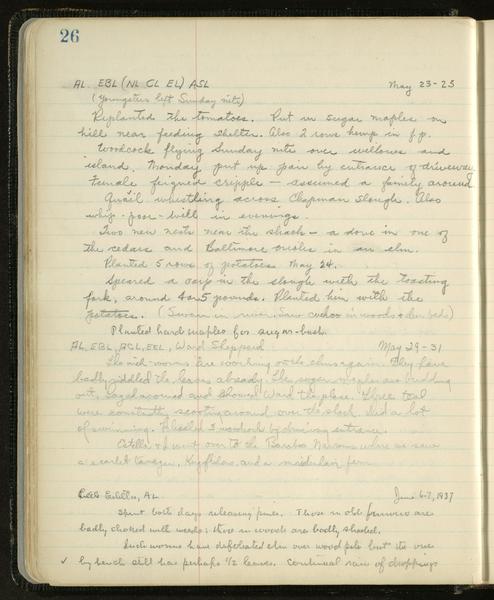 26
AL. EBL (NL CL EL) ASL May 23-25
(Youngsters left Sunday nite)
Replanted the tomatoes. Put in sugar maples on
hill near feeding shelter. Also 2 rows hemp in f.p.
Woodcock flying Sunday nite over willows and
island. Monday put up pair by entrance of driveway
Female feigned cripple — assumed a family around
Quail whistling across Chapman slough. Also
whip-poor-will in evenings.
Two new nests near the shack — a dove in one of
the cedars and Baltimore oriole in an elm.
Planted 5 rows of potatoes May 24.
Speared a carp in the slough with the toasting
fork, around 4 or 5 pounds. Planted him with the
potatoes. (Swam in river. Saw cuckoo in woods
Planted hard maples for sugar-bush.
AL, EBL, ACL, EEL, Ward Sheppard May 29-31
The inch-worms are working on the elms again. They have
badly riddled the leaves already. The sugar maples are budding
out. Loafed around and showed Ward the place. Three teal
were constantly scooting around over the slough. Did a lot
of swimming. Flushed 3 woodcock by driveway entrance.
Estella & I went over to the Baraboo Narrows where we saw
a scarlet tanager, Kingfisher, and a maidenhair fern
Estella, AL June 6-7, 1937
Spent both days releasing pines. Those in old furrows are
badly choked with weeds; those in woods are badly shaded.
Inch worms have defoliated elm over wood pile but the one
✓ by bench still has perhaps 1/2 leaves. Continual rain of droppings